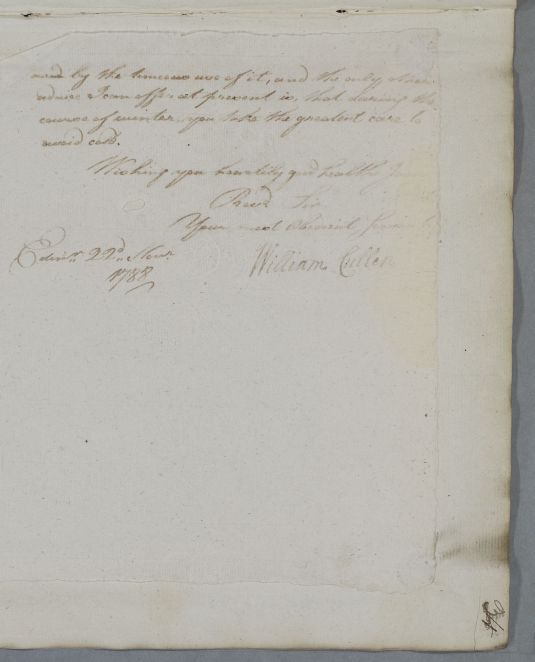 and by the timeous use of it, and the only other
advice I can offer at present is, that during the
course of winter, you take the greatest care to
avoid cold.
Wishing you heartily good health, I
Revd Sir
Your most Obedient
Edinr. 22d. Novr.
1788
William Cullen